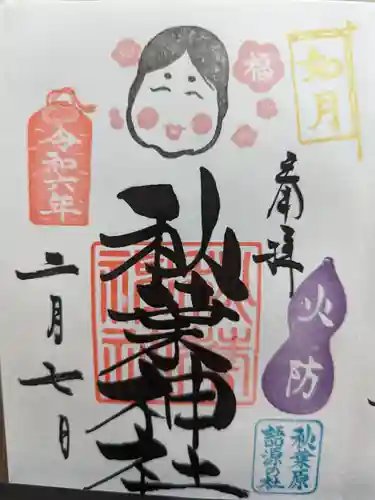 如月
奉拝
火防
秋葉原
諸源の社
福
秋葉神社
令和六年
二月七日